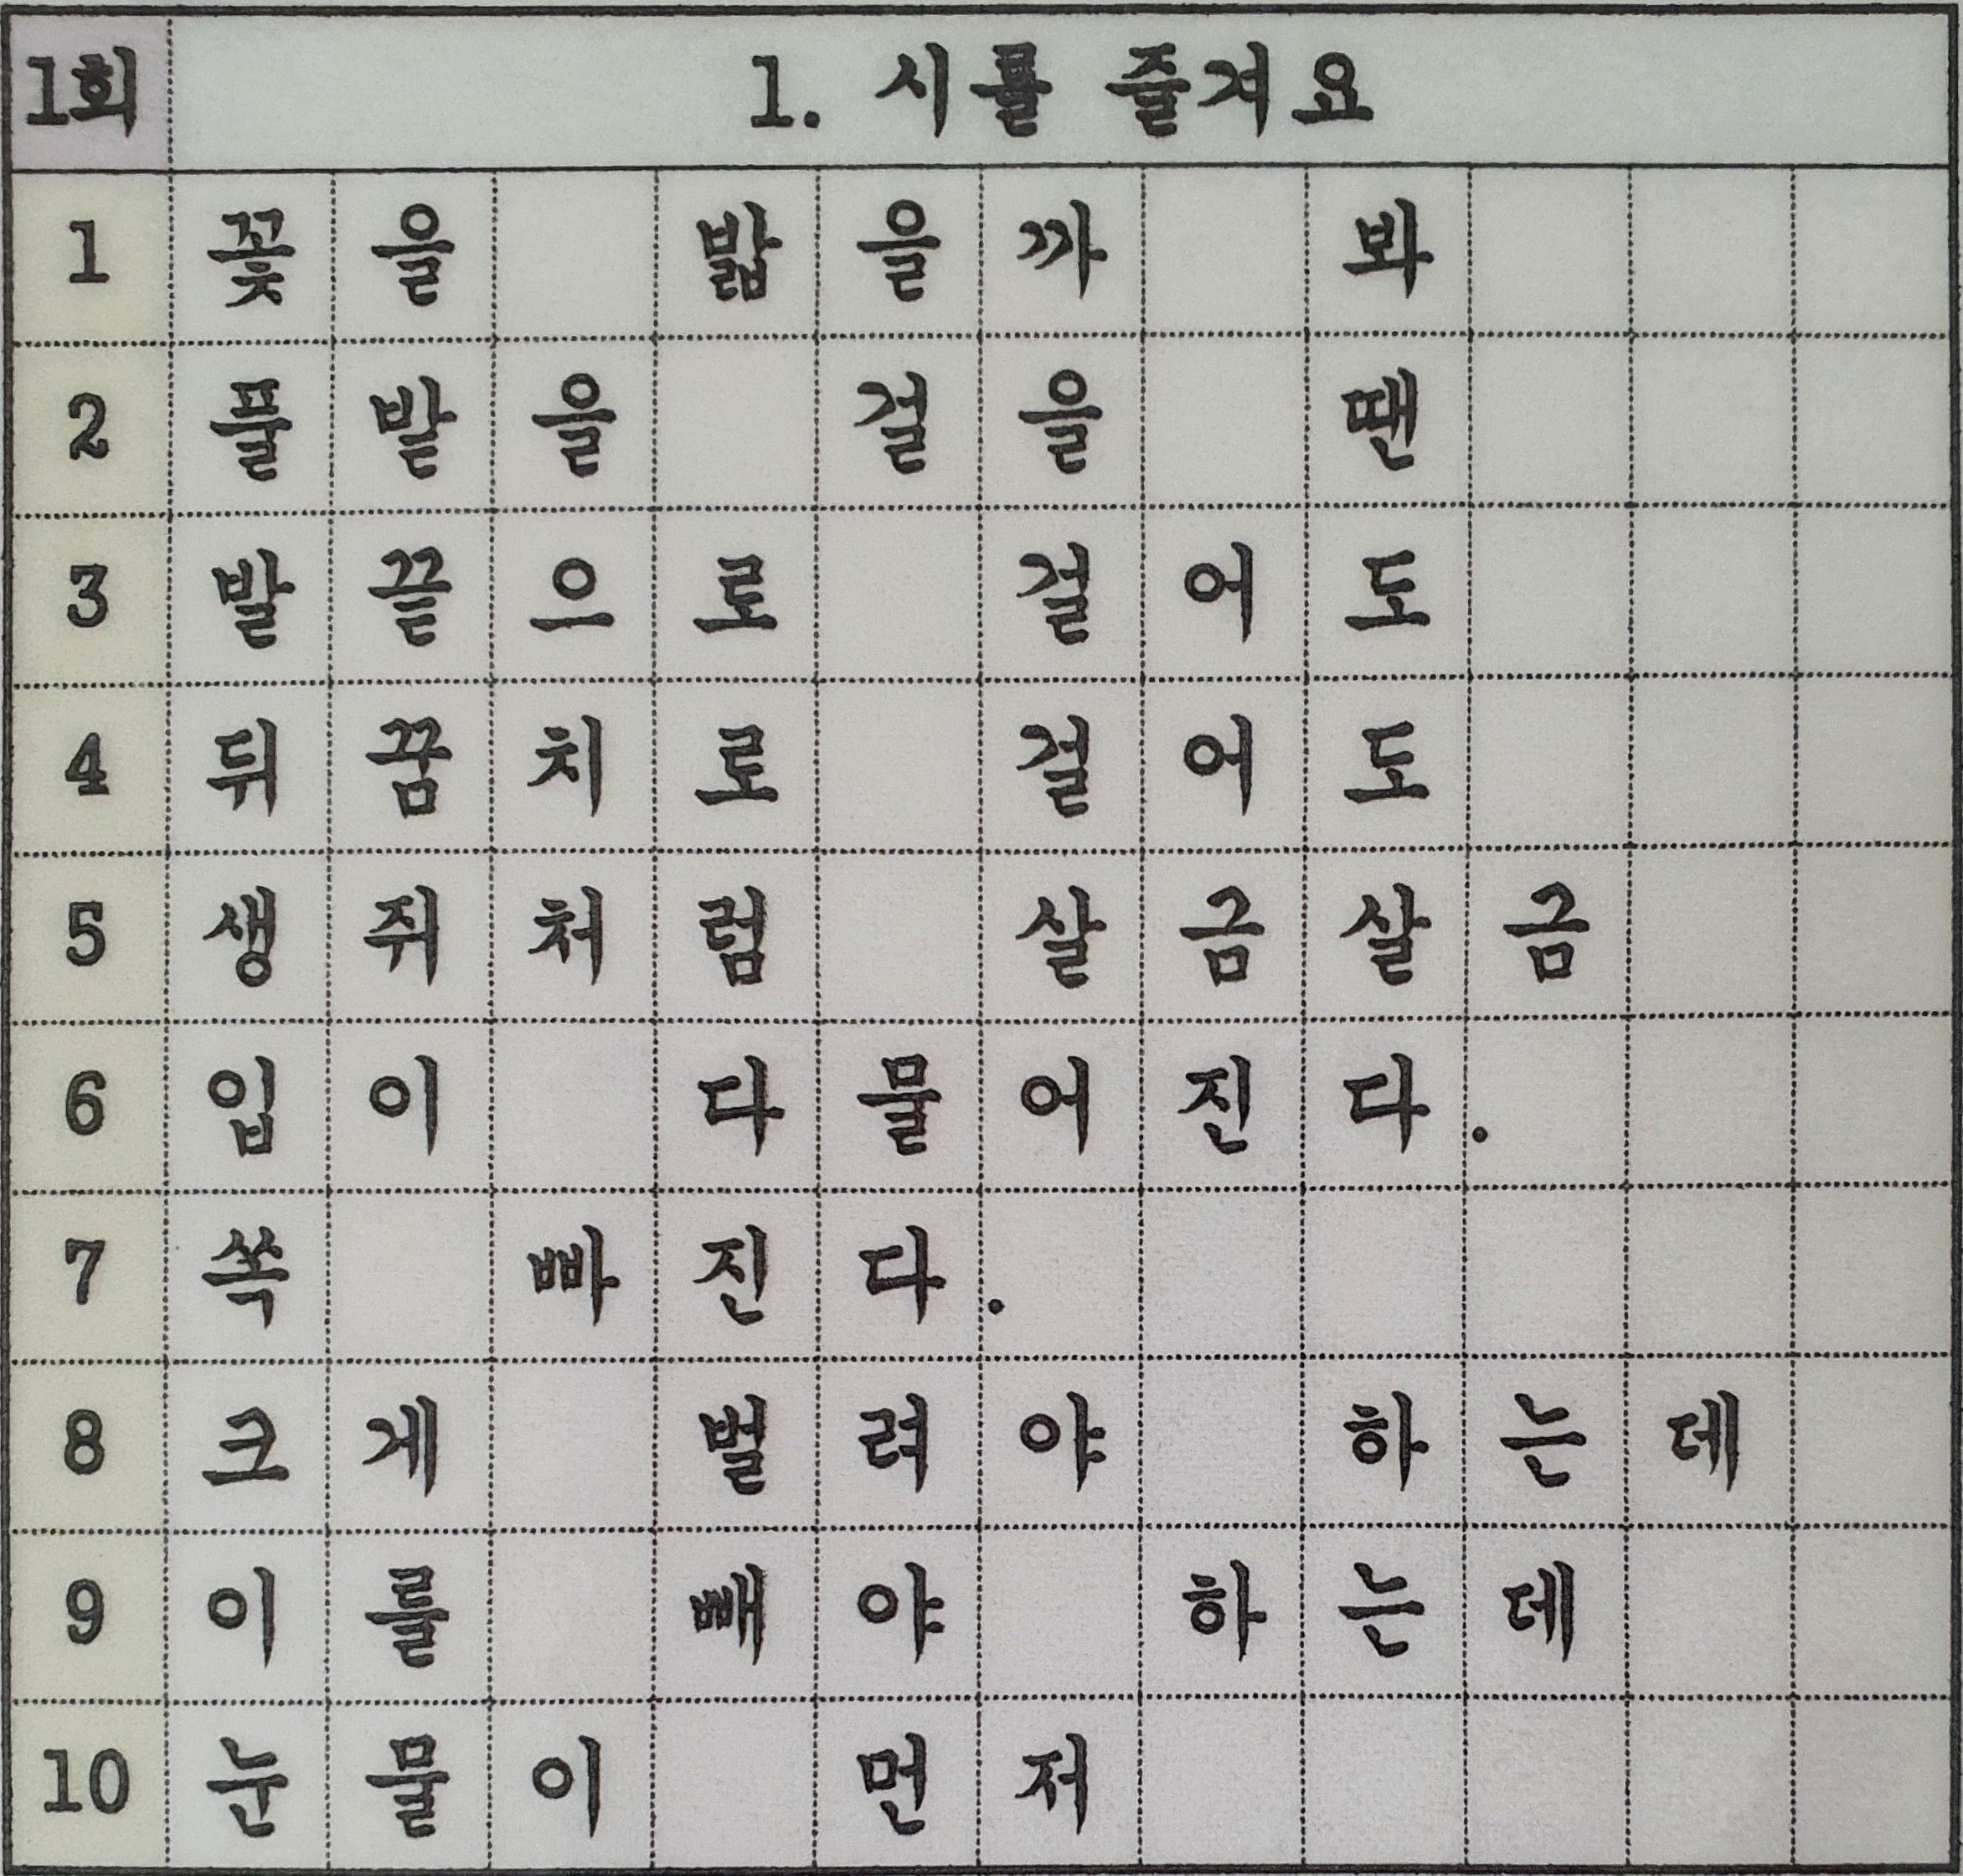 1회 1. 시를 즐겨요
1 꽃을 밟을까 봐
2 풀밭을 걸을 땐
3 발끝으로 걸어도
4 뒤꿈치로 걸어도
5 생쥐처럼 살금살금
6 입이 다물어진다.
7 쏙 빠진다.
8 크게 벌려야 하는데
9 이를 빼야 하는데
10 눈물이 먼저